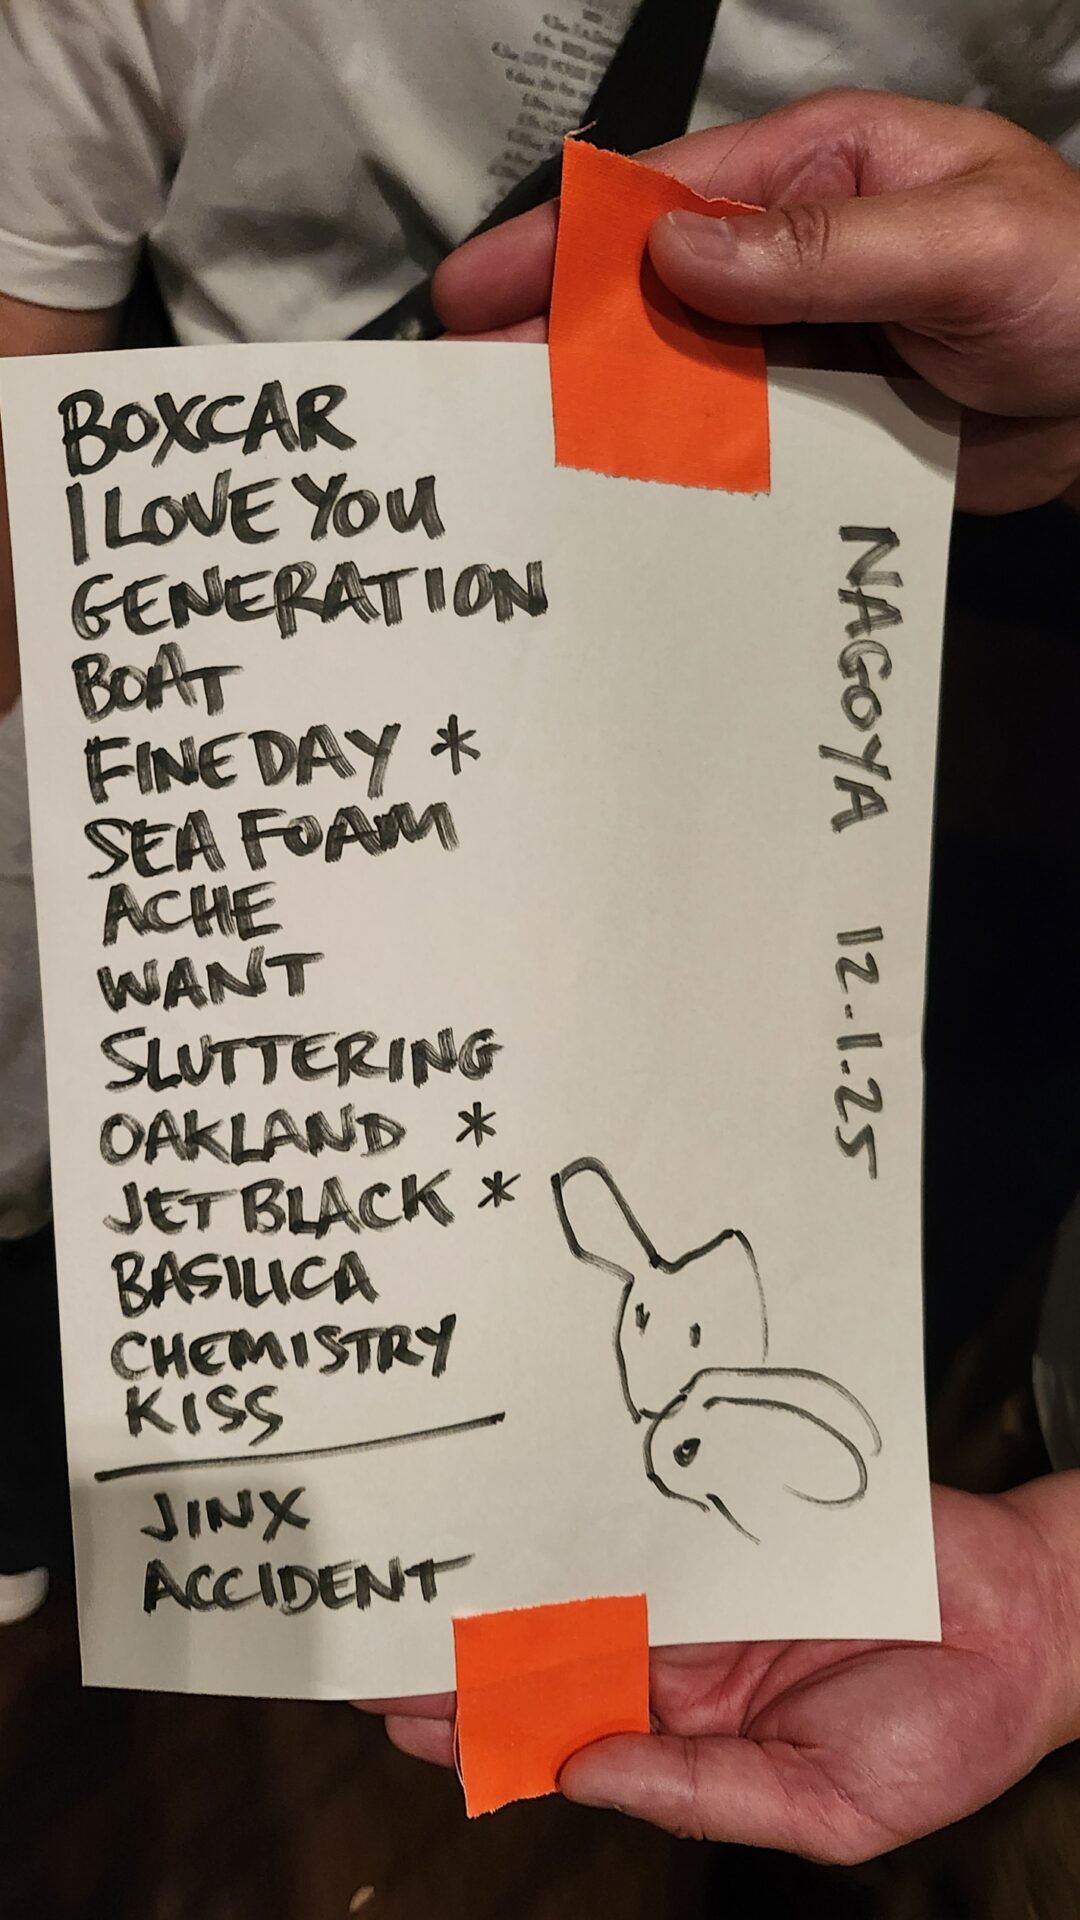 BOXCAR
I LOVE YOU
GENERATION
BOAT
FINE DAY *
SEA FOAM
ACHE
WANT
SLUTTERING
OAKLAND *
JET BLACK *
BASILICA
CHEMISTRY
KISS
JINX
ACCIDENT
NAGOYA 12.1.25